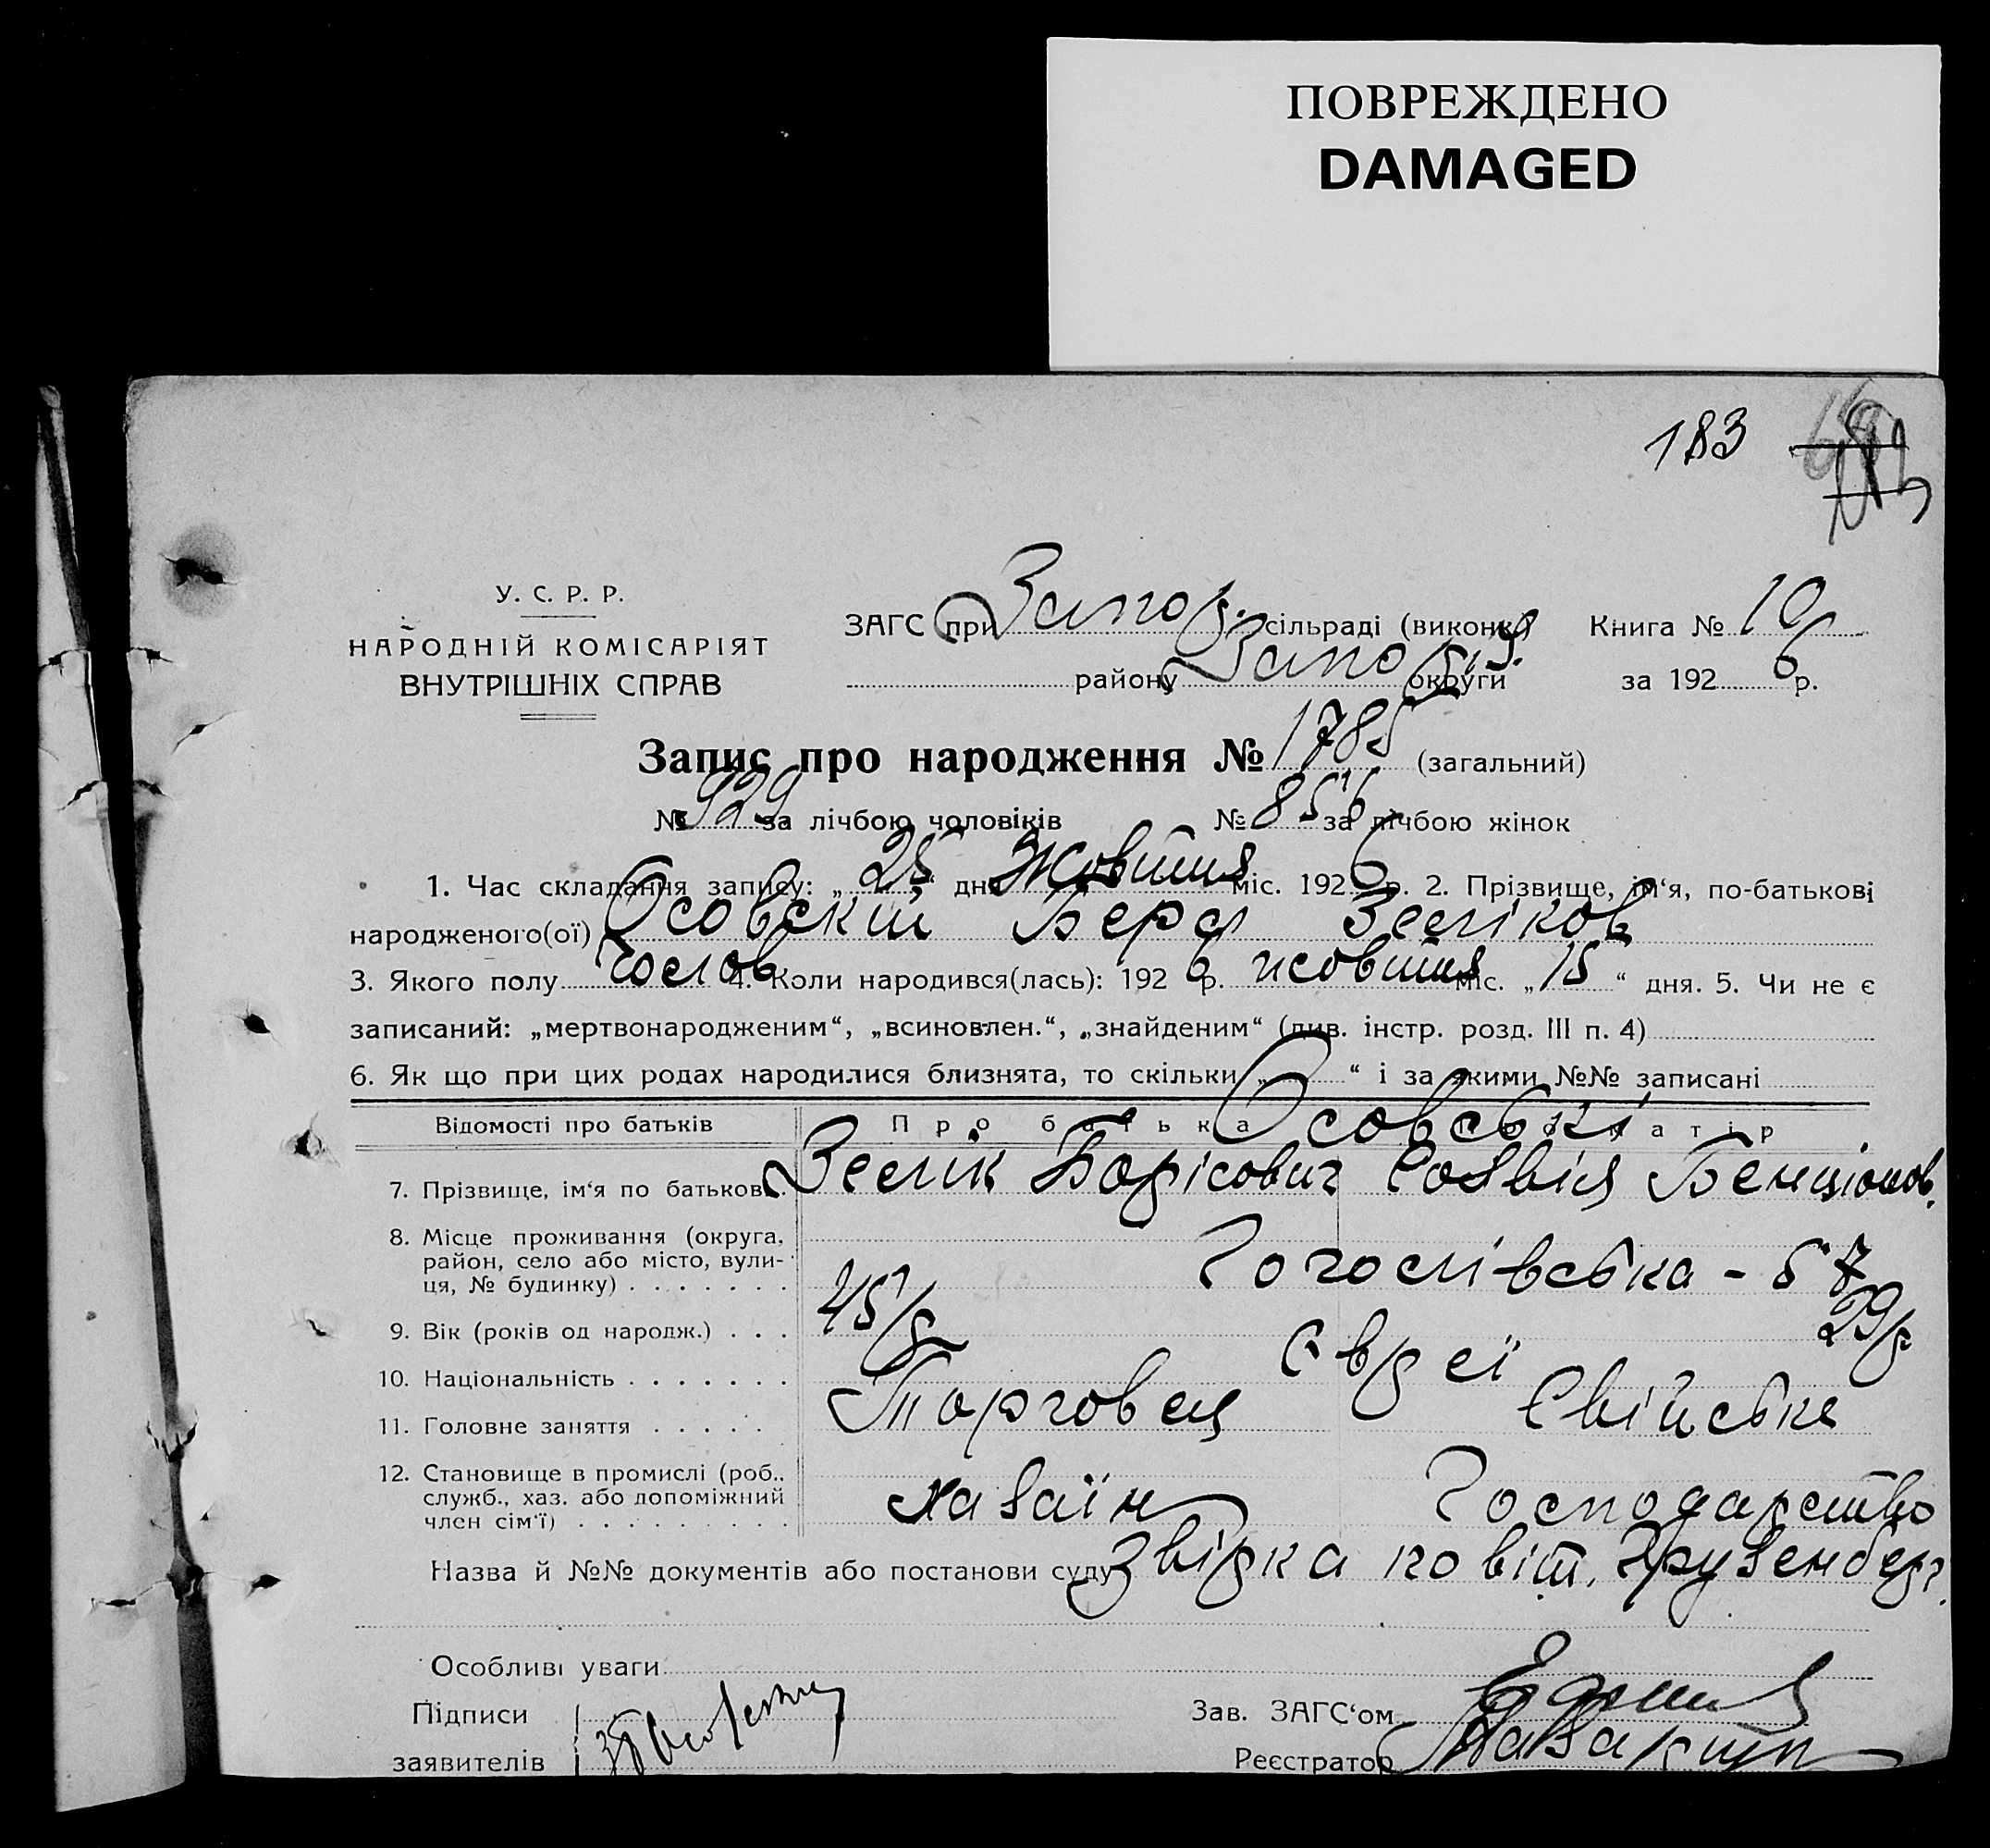 ПОВРЕЖДЕНО
DAMAGED
183
У. С. Р. Р.
НАРОДНІЙ КОМІСАРІЯТ
ВНУТРІШНІХ СПРАВ
ЗАГС при Запор. сільраді (виконк.) Книга № 10
району Запоріз. округи за 1926 р.
Запис про народження № 1785 (загальний)
№ 929 за лічбою чоловіків № 856 за лічбою жінок
1. Час складання запису: „25“ дня Жовтня міс. 1926 р. 2. Прізвище, ім‘я, по-батькові
народженого(ої) Осовский Берл Зеліков
3. Якого полу чолов 4. Коли народився(лась): 1926 р. жовтня міс. „15“ дня. 5. Чи не є
записаний: „мертвонародженим“, „всиновлен.“, „знайденим“ (див. інстр. розд. III п. 4)
6. Як що при цих родах народилися близнята, то скільки „ “ і за якими №№ записані
Відомості про батьків Про батька Про матір
Осовські
7. Прізвище, ім‘я по батькові Зелік Борісович Бенціонов.
8. Місце проживання (округа, район, село або місто, вулиця, № будинку) Гоголівська - 57
9. Вік (років од народж.) 45/р 29/р
10. Національність Євреї
11. Головне заняття Торговец Свійське
12. Становище в промислі (роб., служб., хаз. або допоміжний член сім‘ї) хазаїн Господарство
Назва й №№ документів або постанови суду Звірка повіт. Грузенберг.
Особливі уваги
Підписи
заявителів
Зав. ЗАГС‘ом
Реєстратор